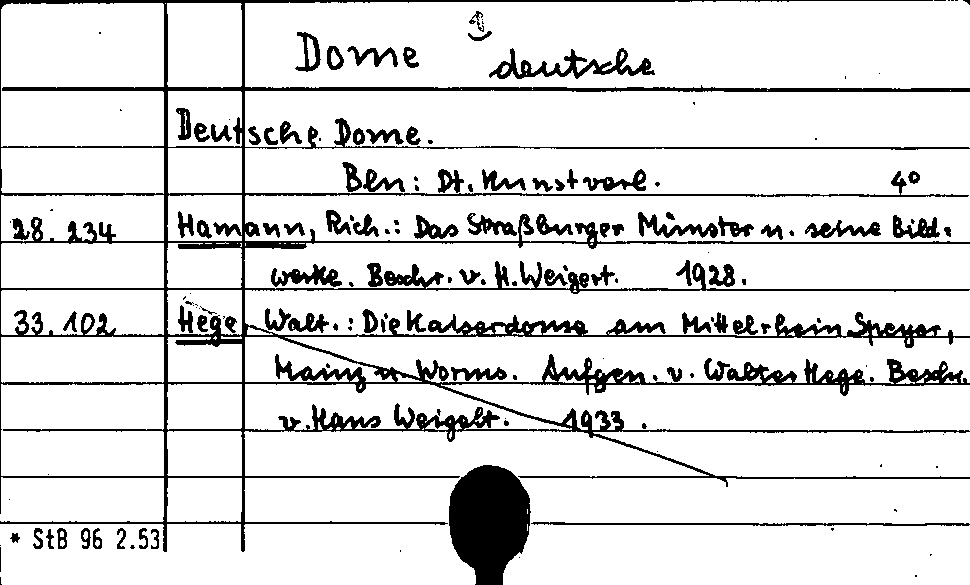 1
Dome deutsche
Deutsche Dome.
Bln: Dt. Kunstverl. 4°
28. 234 Hamann, Rich.: Das Straßburger Münster u. seine Bild=
werke. Beschr. v. H. Weigert. 1928.
33. 102 Hege, Walt.: Die Kaiserdome am Mittelrhein Speyer,
Mainz u. Worms. Aufgen. v. Walter Hege. Beschr.
v. Hans Weigelt. 1933.
* StB 96 2.53